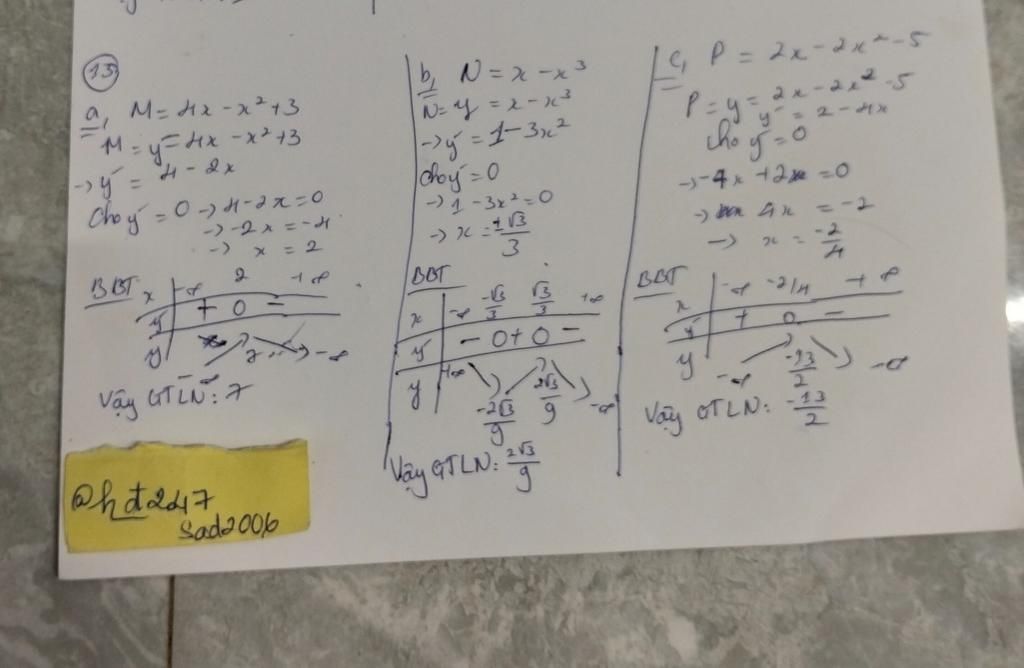 13
a, M = 4x - x² + 3
M = y = 4x - x² + 3
→ y' = 4 - 2x
Cho y' = 0 → 4 - 2x = 0
→ -2x = -4
→ x = 2
BBT
x -∞ 2 +∞
y' + 0 -
y -∞ 7 -∞
Vậy GTLN: 7
b, N = x - x³
N = y = x - x³
→ y' = 1 - 3x²
Cho y' = 0
→ 1 - 3x² = 0
→ x = ±√3/3
BBT
x -∞ -√3/3 √3/3 +∞
y' - 0 + 0 -
y +∞ -2√3/9 2√3/9 -∞
Vậy GTLN: 2√3/9
c, P = 2x - 2x² - 5
P = y = 2x - 2x² - 5
y' = 2 - 4x
Cho y' = 0
→ -4x + 2 = 0
→ 4x = -2
→ x = -2/4
BBT
x -∞ -2/4 +∞
y' + 0 -
y -∞ -13/2 -∞
Vậy GTLN: -13/2
@hđ247
sad2006